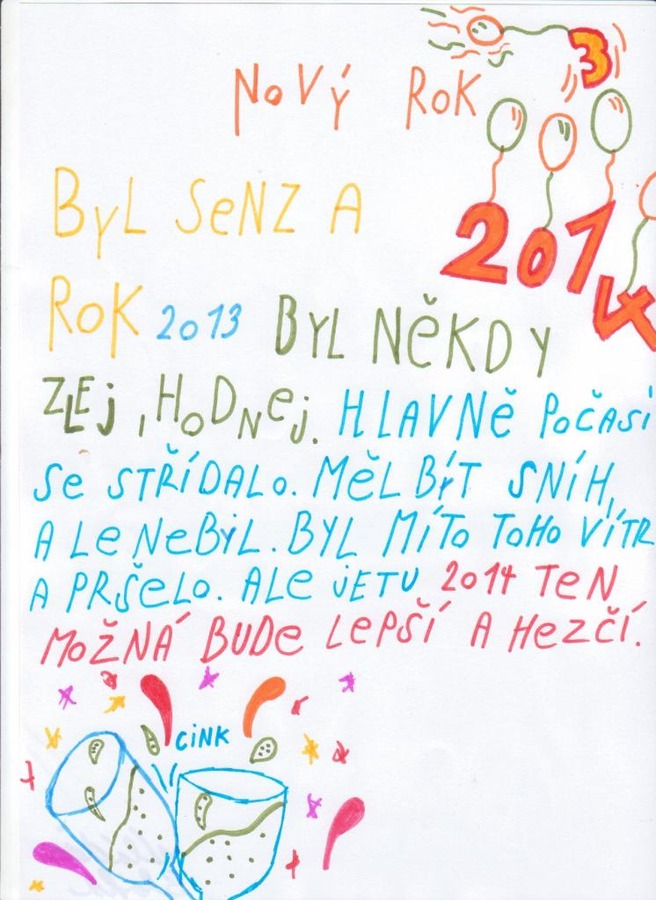 3
NOVÝ ROK
2014
BYL SENZA
ROK 2013 BYL NĚKDY
ZLEJ, HODNEJ. HLAVNĚ POČASÍ
SE STŘÍDALO. MĚL BÝT SNÍH,
ALE NEBYL. BYL MÍTO TOHO VÍTR
A PRŠELO. ALE JETU 2014 TEN
MOŽNÁ BUDE LEPŠÍ A HEZČÍ.
CINK